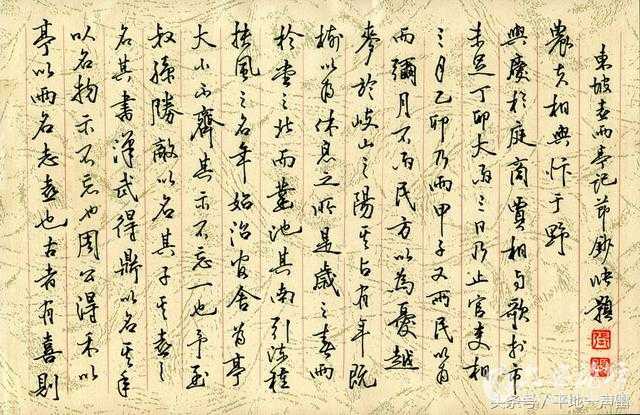 亭以雨名志喜也古者有喜則
以名物示不忘也周公得禾以
名其書漢武得鼎以名其年
叔孫勝敵以名其子其喜之
大小不齊其示不忘一也予至
扶風之名年始治官舍為亭
於堂之北而鑿池其南引流種
樹以為休息之所是歲之春雨
麥於岐山之陽其占有年既
而彌月不雨民方以為憂越
三月乙卯乃雨甲子又雨民以為
未足丁卯大雨三日乃止官吏相
與慶於庭商賈相與歌於市
農夫相與忭于野
東坡喜雨亭記節鈔 題
头条号/平地一声雷